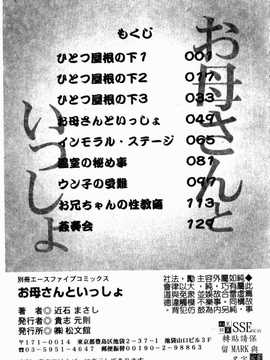 お母さんといっしょ
もくじ
ひとつ屋根の下1 001
ひとつ屋根の下2 017
ひとつ屋根の下3 033
お母さんといっしょ 049
インモラル・ステージ 065
の秘め事 081
ウン子の受難 097
お兄ちゃんの性教 113
宴会 129
別冊エースファイブコミックス
お母さんといっしょ
著者◎近石まさし
発行人◎貴志元則
発行所◎㈱松文館
〒171-0014 東京都豊島区池袋2-37-1 池袋山口ビル3F
03-5951-4647 郵便振替00190-2-98863
SSE
轉貼請保
留MARK與